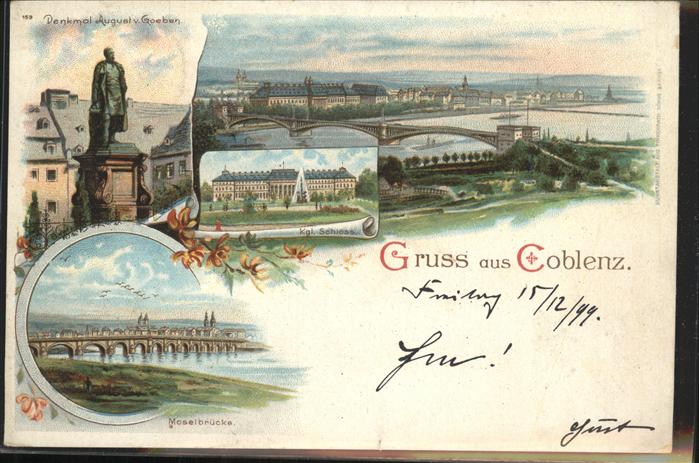 159
Denkmal August v. Goeben.
Kgl. Schloss.
Gruss aus Coblenz.
Freitag 15/12/99.
Moselbrücke.